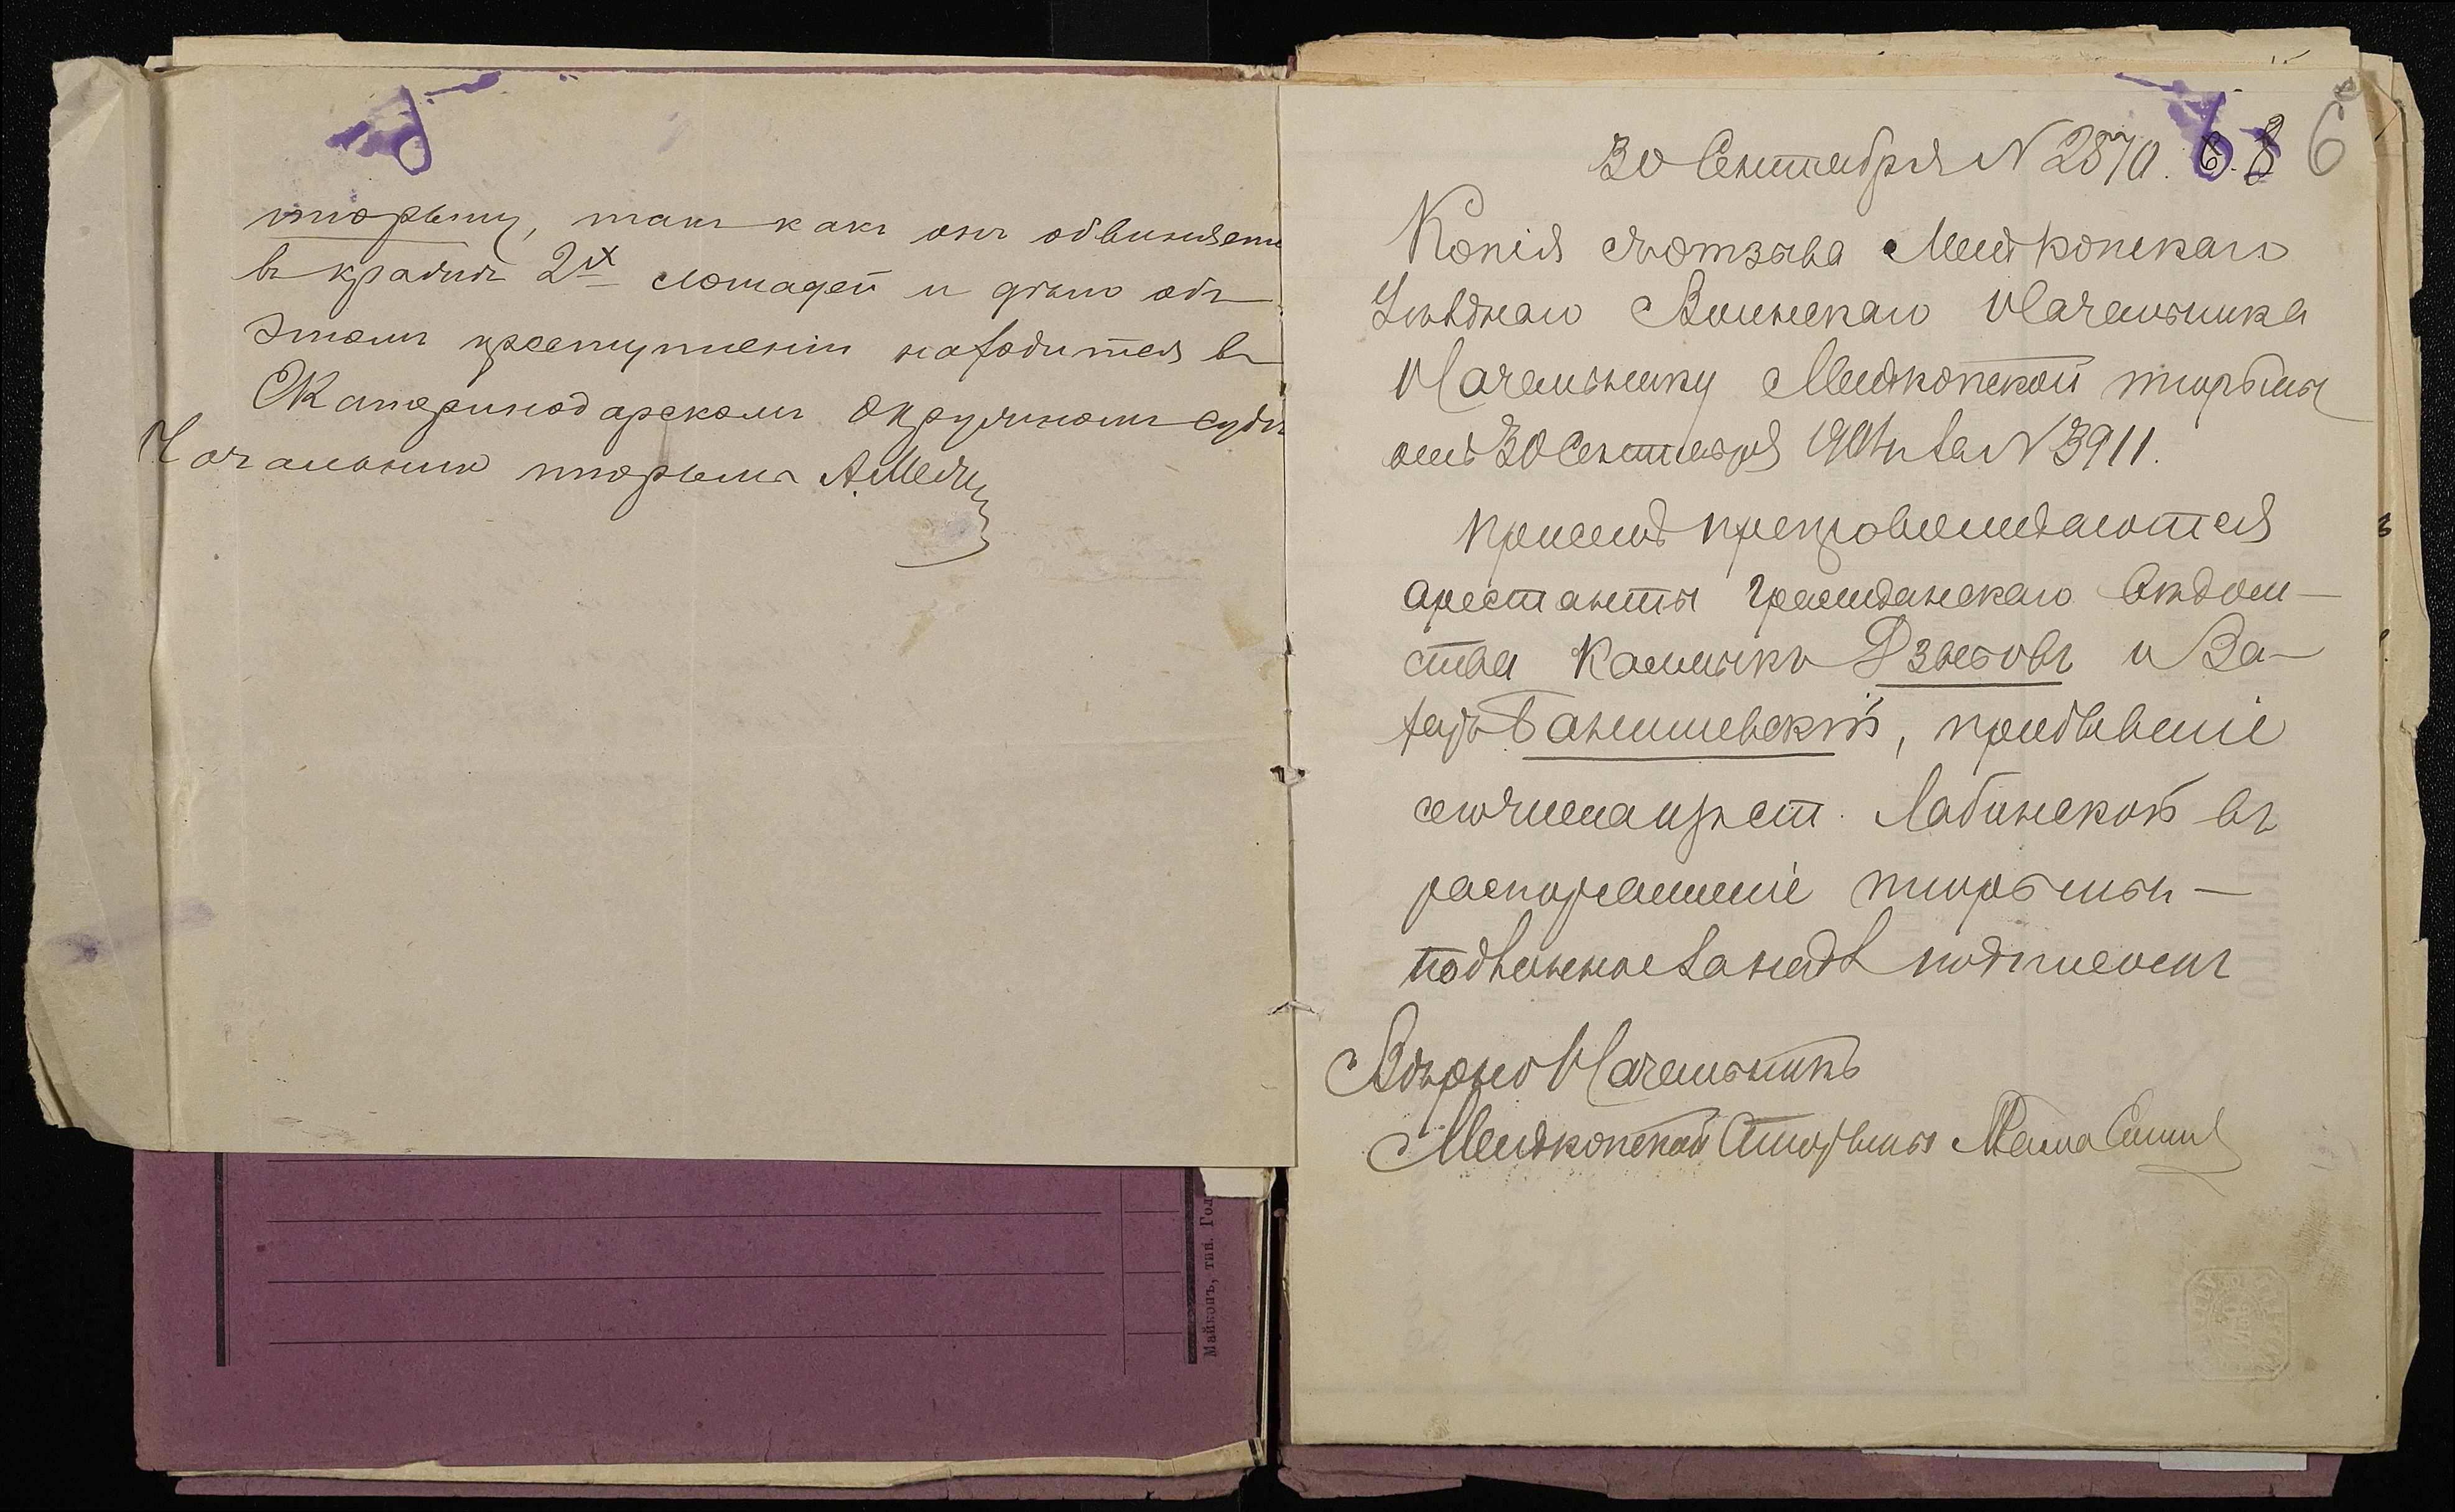 тюрьму, такъ какъ онъ обвиняетъ
въ кражѣ 2х лошадей и дѣло объ
этомъ преступленіи находится въ
Екатеринодарскомъ Окружномъ судѣ
Начальникъ тюрьмы А.
30 Сентября N 2870. 6. 8 6
Копія съ отзыва Майкопскаго
Уѣзднаго Воинскаго Начальника
Начальнику Майкопской тюрьмы
отъ 30 Сентября за N 3911.
При семъ препровождаются
арестанты гражданскаго вѣдом-
ства Калмыкъ и За-
харъ, прибывшіе
сего числа изъ ст. Лабинской въ
распоряженіе тюрьмы
подлинное за надл подписомъ
Вѣрно Начальникъ
Майкопской тюрьмы
Майкопъ, тип. Гол